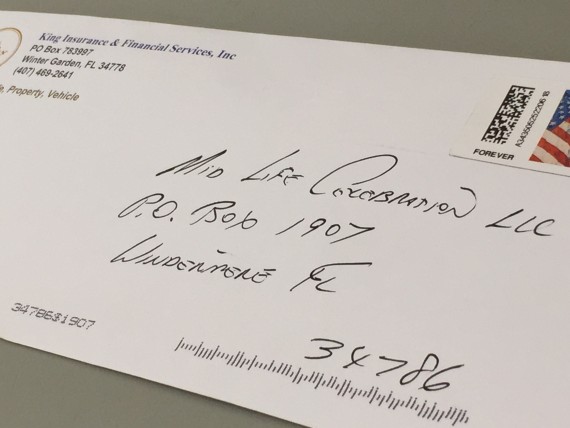 King Insurance & Financial Services, Inc
PO Box 783997
Winter Garden, FL 34778
(407) 469-2641
Property, Vehicle
FOREVER
Mid Life Celebration LLC
P.O. Box 1907
Windermere FL
34786
34786$1907